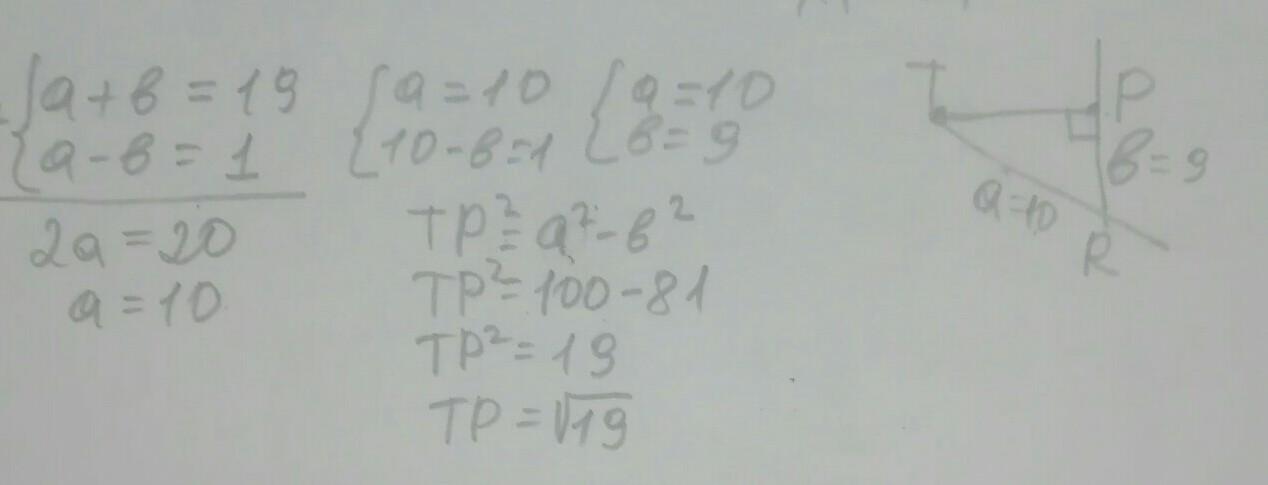 a + в = 19
a - в = 1
2a = 20
a = 10
a = 10
10 - в = 1
a = 10
в = 9
TP² = a² - в²
TP² = 100 - 81
TP² = 19
TP = √19
T
P
в = 9
a = 10
R